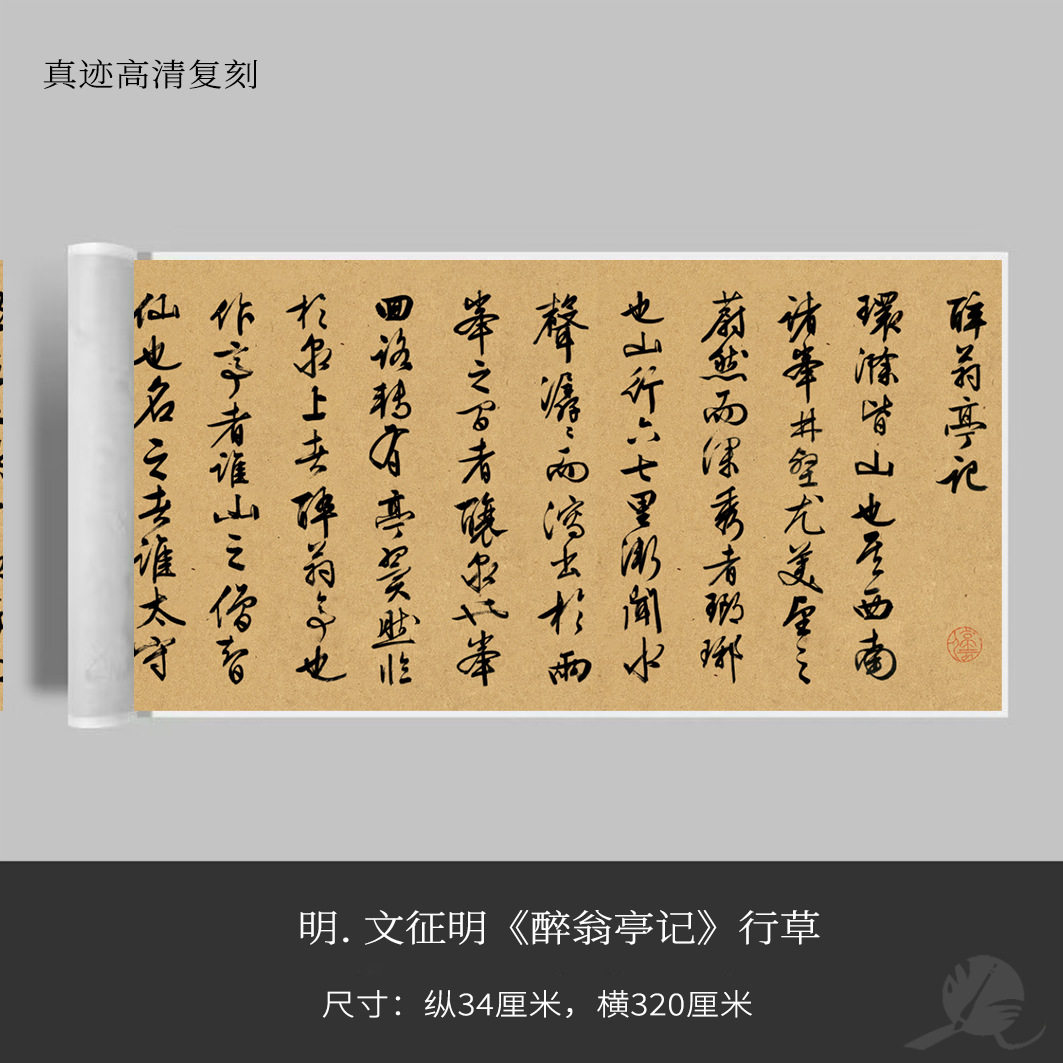 真迹高清复刻
醉翁亭記
環滁皆山也其西南
諸峯林壑尤美望之
蔚然而深秀者瑯琊
也山行六七里漸聞水
聲潺〻而瀉出於兩
峯之間者釀泉也峯
回路轉有亭翼然臨
於泉上者醉翁亭也
作亭者誰山之僧智
仙也名之者誰太守
明. 文征明《醉翁亭记》行草
尺寸：纵34厘米，横320厘米